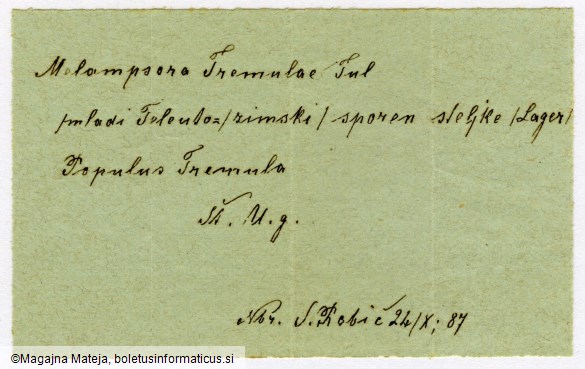 Melampsora Tremulae Tul
/mladi Teleuto=/zimski/ sporen steljke /Lager/
Populus Tremula
Št. U. g.
Nbr. S. Robič 24/X; 87
©Magajna Mateja, boletusinformaticus.si